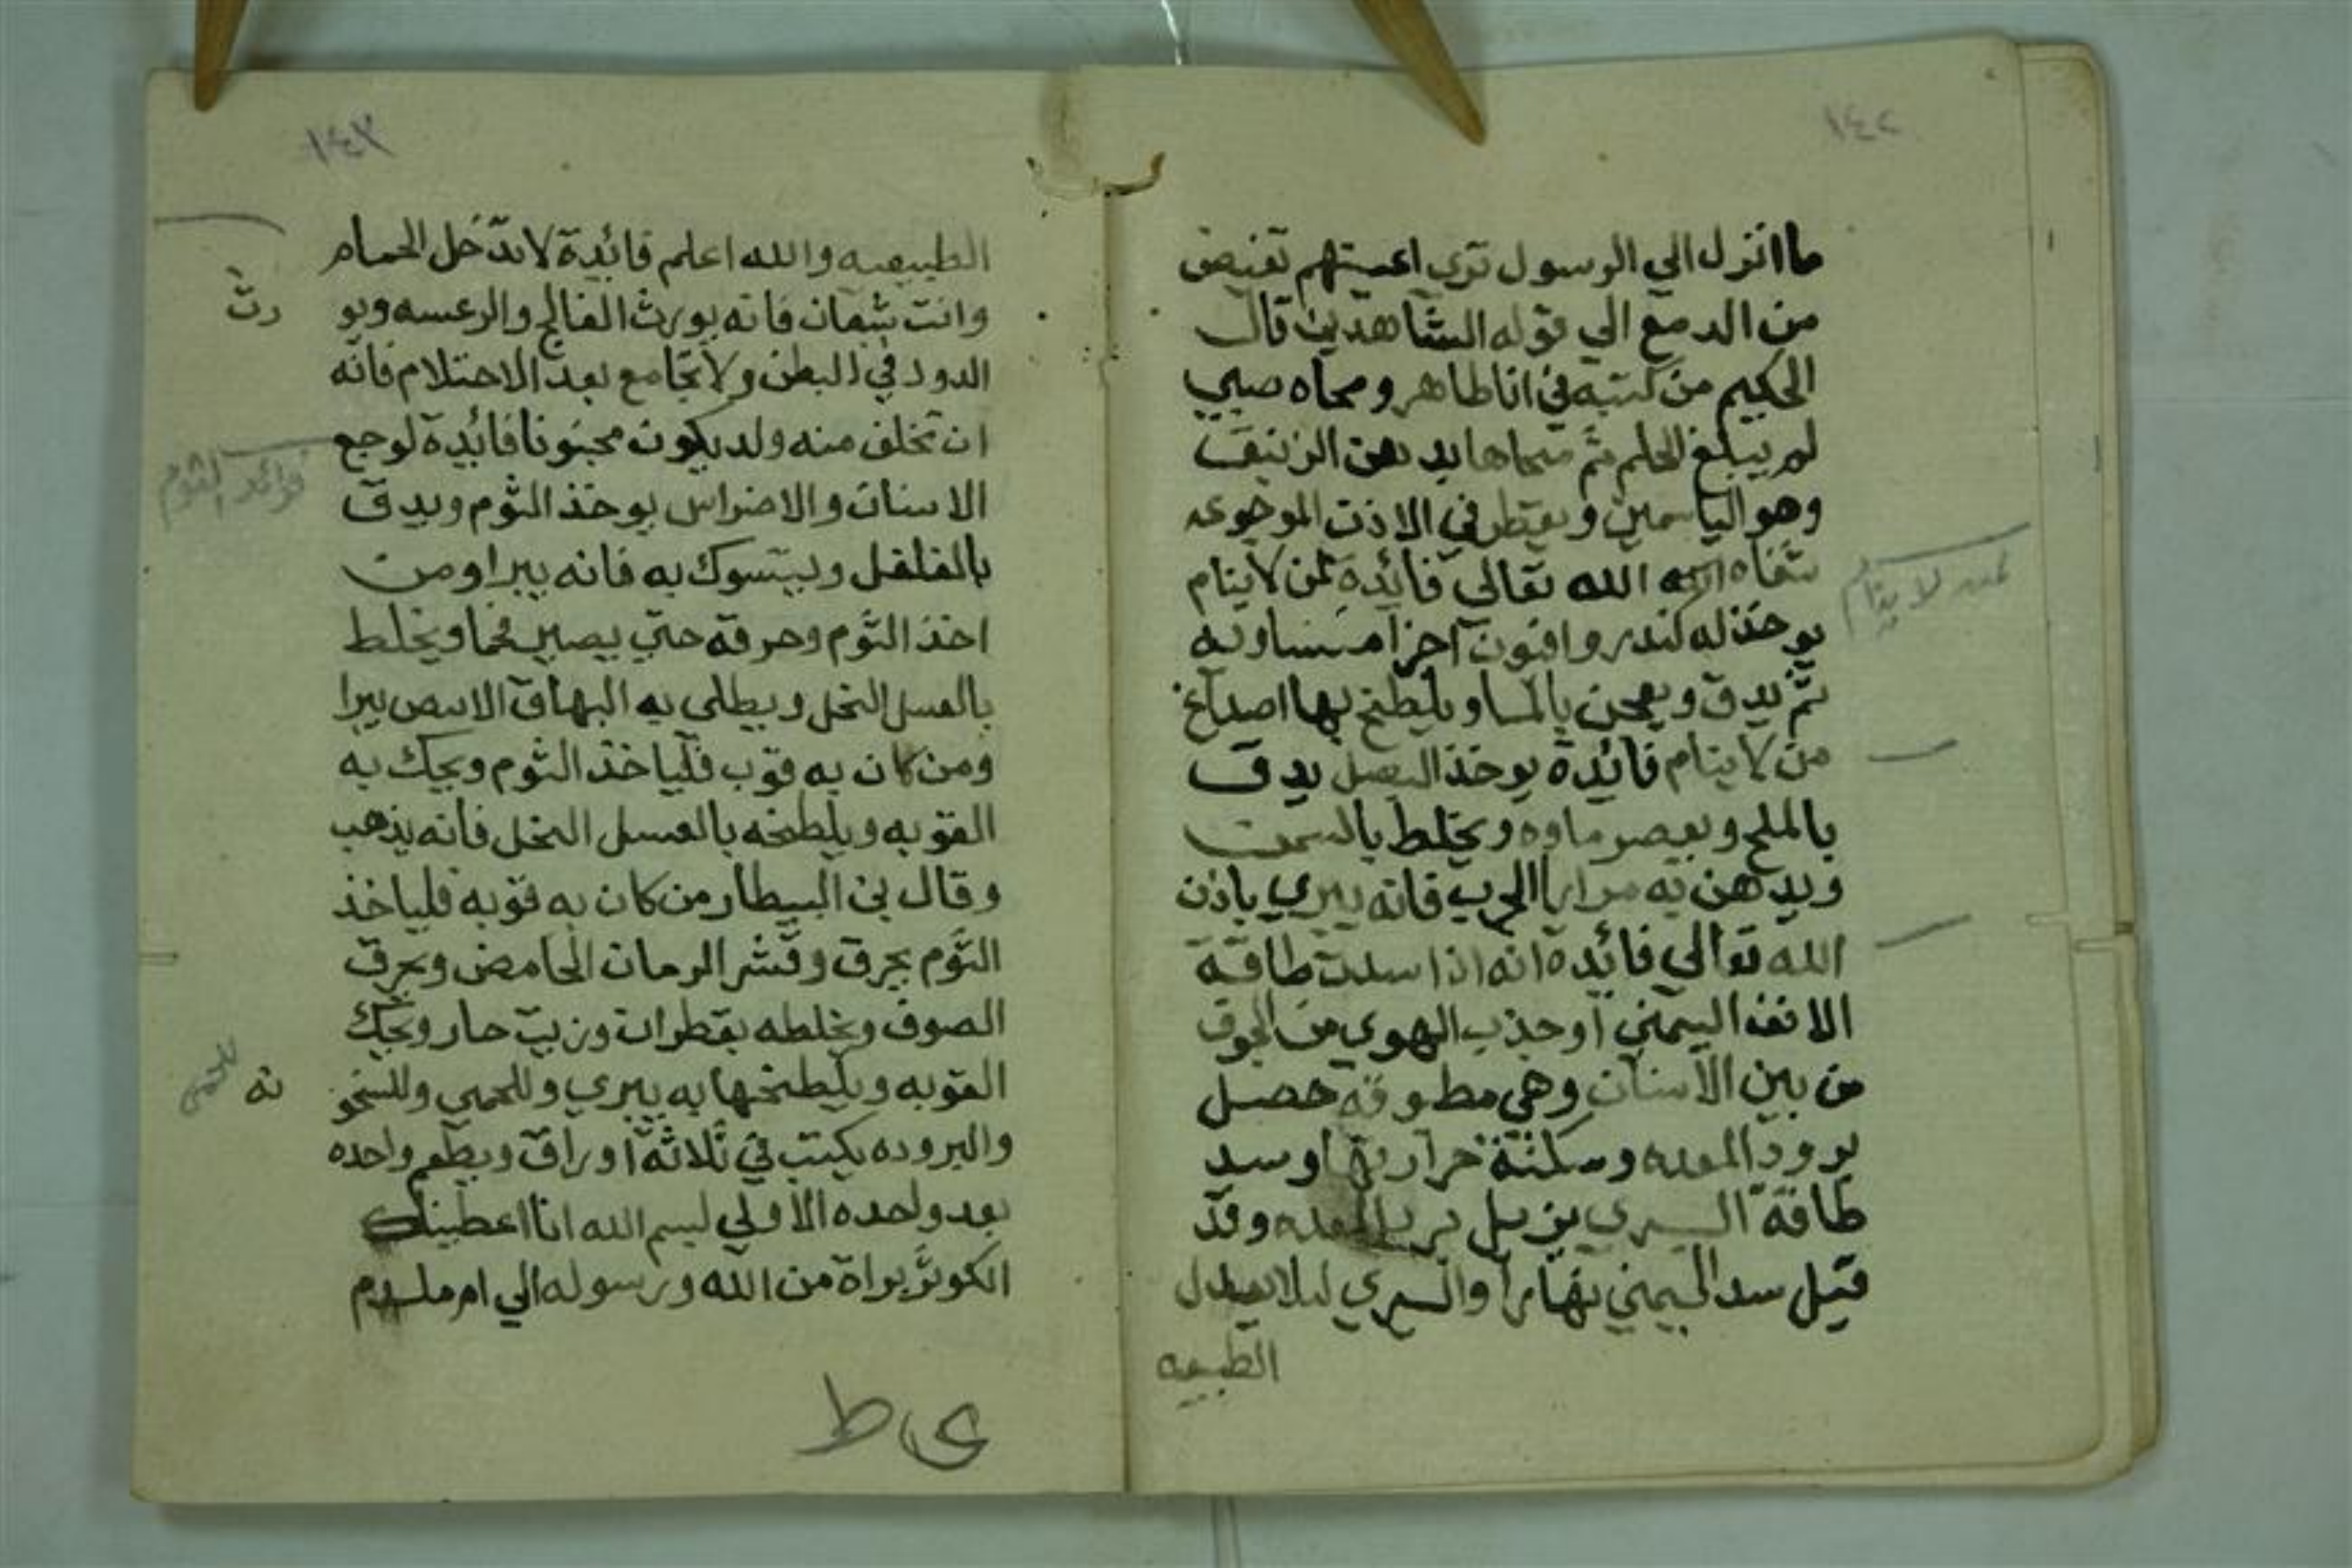 ١٤٢
ما انزل الي الرسول تري اعينهم تفيض
من الدمع الي قوله الشاهدين قال
الحكيم من كتبه في انا طاهر ومحاه صبي
لم يبلغ الحلم ثم محاها بدهن الزنبق
وهو الياسمين ويقطر في الاذن الموجوعه
شفاه الله تعالي فائدة لمن لا ينام
لمن لا ينام
يوخذ له كندر وافيون اجزا متساويه
ثم يدق ويعجن بالما ويلطخ بها اصداغ
من لا ينام فائدة يوخذ البصل يدق
بالملح ويعصر ماوه ويخلط بالسمن
ويدهن به مرارا الجرب فانه يبري باذن
الله تعالي فائده انه اذا سدت طاقة
الانف اليمني او جذب الهوي من الجوف
من بين الاسنان وهي مطبوقة حصل
برود المعده وسكنة حرارتها وسد
طاقة اليسري يزيل برد المعده وقد
قيل سد اليمني نهارا واليسري ليلا يعدل
الطبيعه
١٤٣
الطبيعيه والله اعلم فائدة لا تدخل الحمام
وانت شبعان فانه يورث الفالج والرعسه ويو
رث
الدود في البطن ولا تجامع بعد الاحتلام فانه
ان تخلف منه ولد يكون مجنونا فائدة لوجع
فوائد الثوم
الاسنان والاضراس يوخذ الثوم ويدق
بالفلفل ويتسوك به فانه يبرا ومن
اخذ الثوم وحرقه حتي يصير فحما ويخلط
بالعسل النحل ويطلي به البهاق الابيض يبرا
ومن كان به قوب فلياخذ الثوم ويحك به
القوبه ويلطخه بالعسل النحل فانه يذهب
وقال بن البيطار من كان به قوبة فلياخذ
الثوم يحرق وقشر الرمان الحامض ويحرق
الصوف ويخلطه بقطران وزيت حار ويحك
القوبه ويلطخها به يبري وللحمي وللسخو
نه
للحمى
والبروده يكتب في ثلاثة اوراق ويطعم واحده
بعد واحده الاولي بسم الله انا اعطيناك
الكوثر براة من الله ورسوله الي ام ملدم